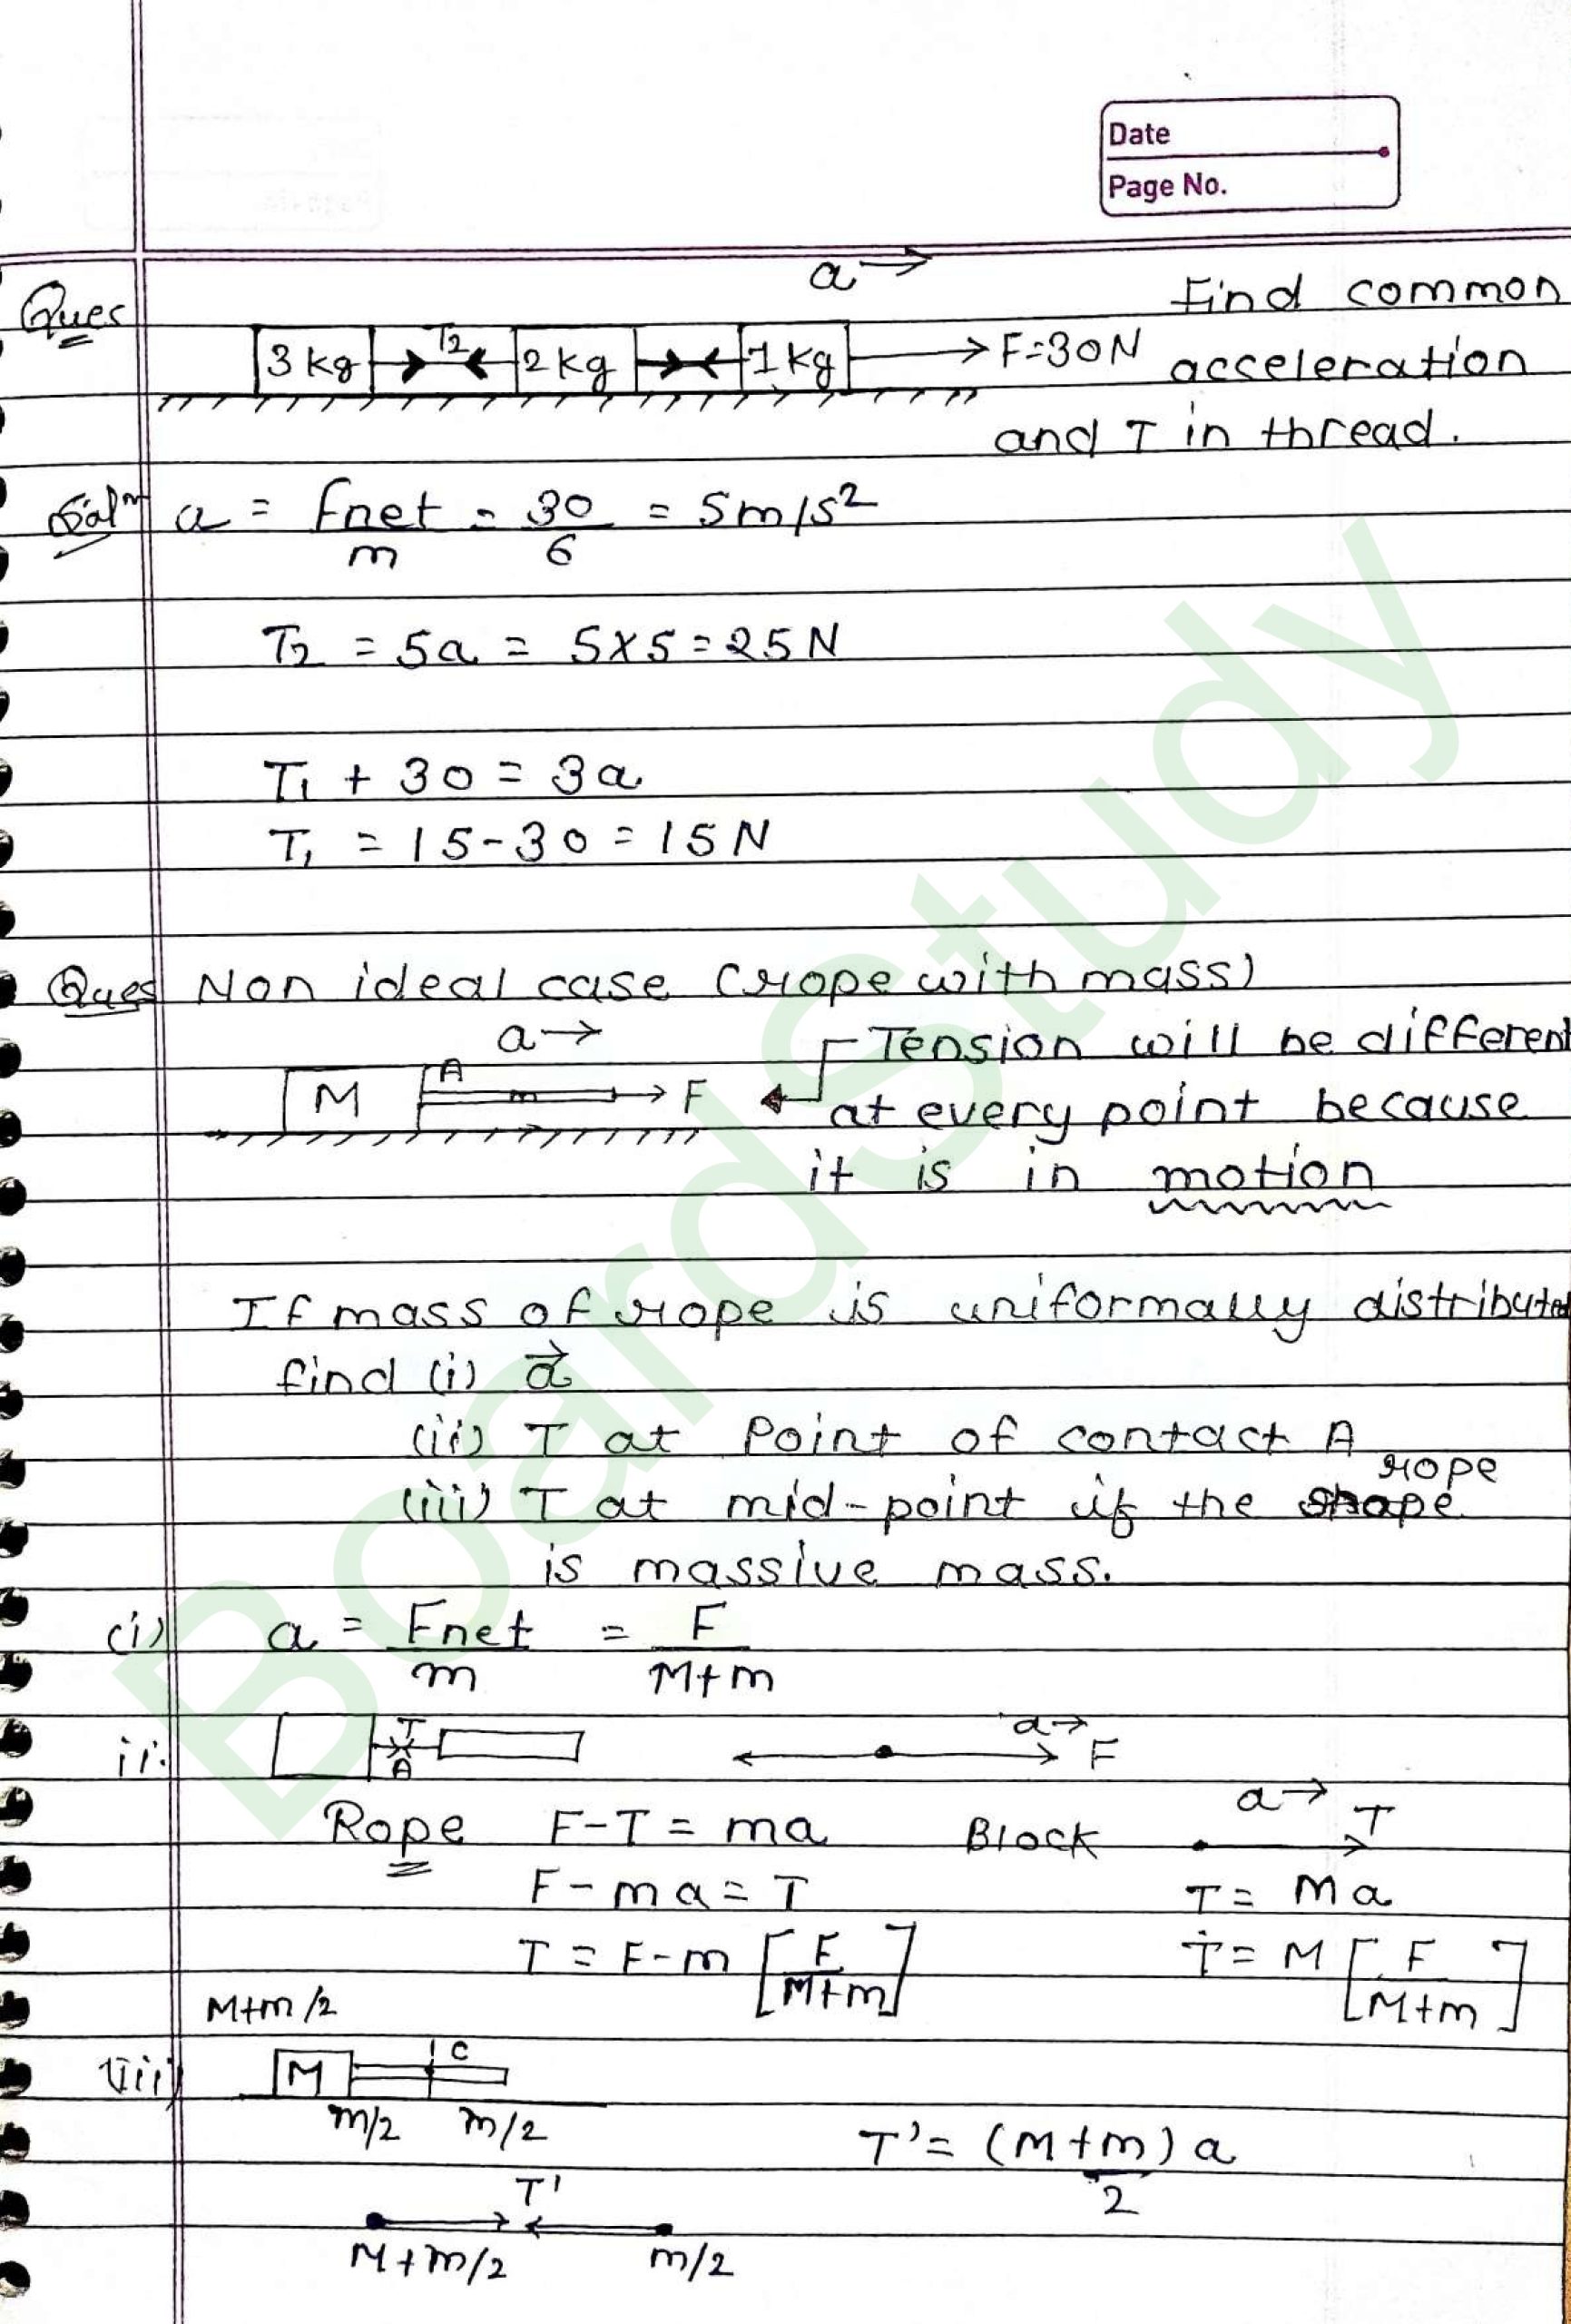 Date
Page No.
Ques
a→
3 kg T2 2 kg 1 kg → F=30N
Find common
acceleration
and T in thread.
Solⁿ a = Fnet/m = 30/6 = 5m/s²
T2 = 5a = 5×5=25N
T1 + 30 = 3a
T1 = 15-30 = 15N
Ques Non ideal case (rope with mass)
a→
M A m → F
Tension will be different
at every point because
it is in motion
If mass of rope is uniformally distributed
find (i) a⃗
(ii) T at Point of contact A
(iii) T at mid-point if the rope
is massive mass.
(i) a = Fnet/m = F/M+m
ii. T A a→ F
Rope F-T = ma Block a→ T
F-ma=T T= Ma
T = F-m [F/M+m] T= M [F/M+m]
M+m/2
iii) M C
m/2 m/2
T'= (M+m/2) a
T'
M+m/2 m/2
BoardStudy